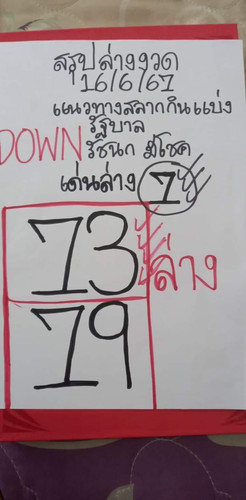 สรุปล่างงวด
16/6/67
แนวทางสลากกินแบ่ง
รัฐบาล
DOWN รัชนก มีโชค
เด่นล่าง 7
73 ล่าง
79